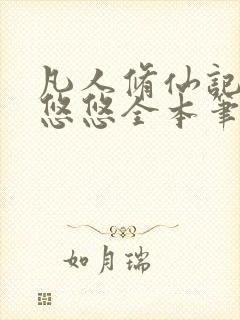 凡人脩仙記
悠悠全本筆
如月瑞